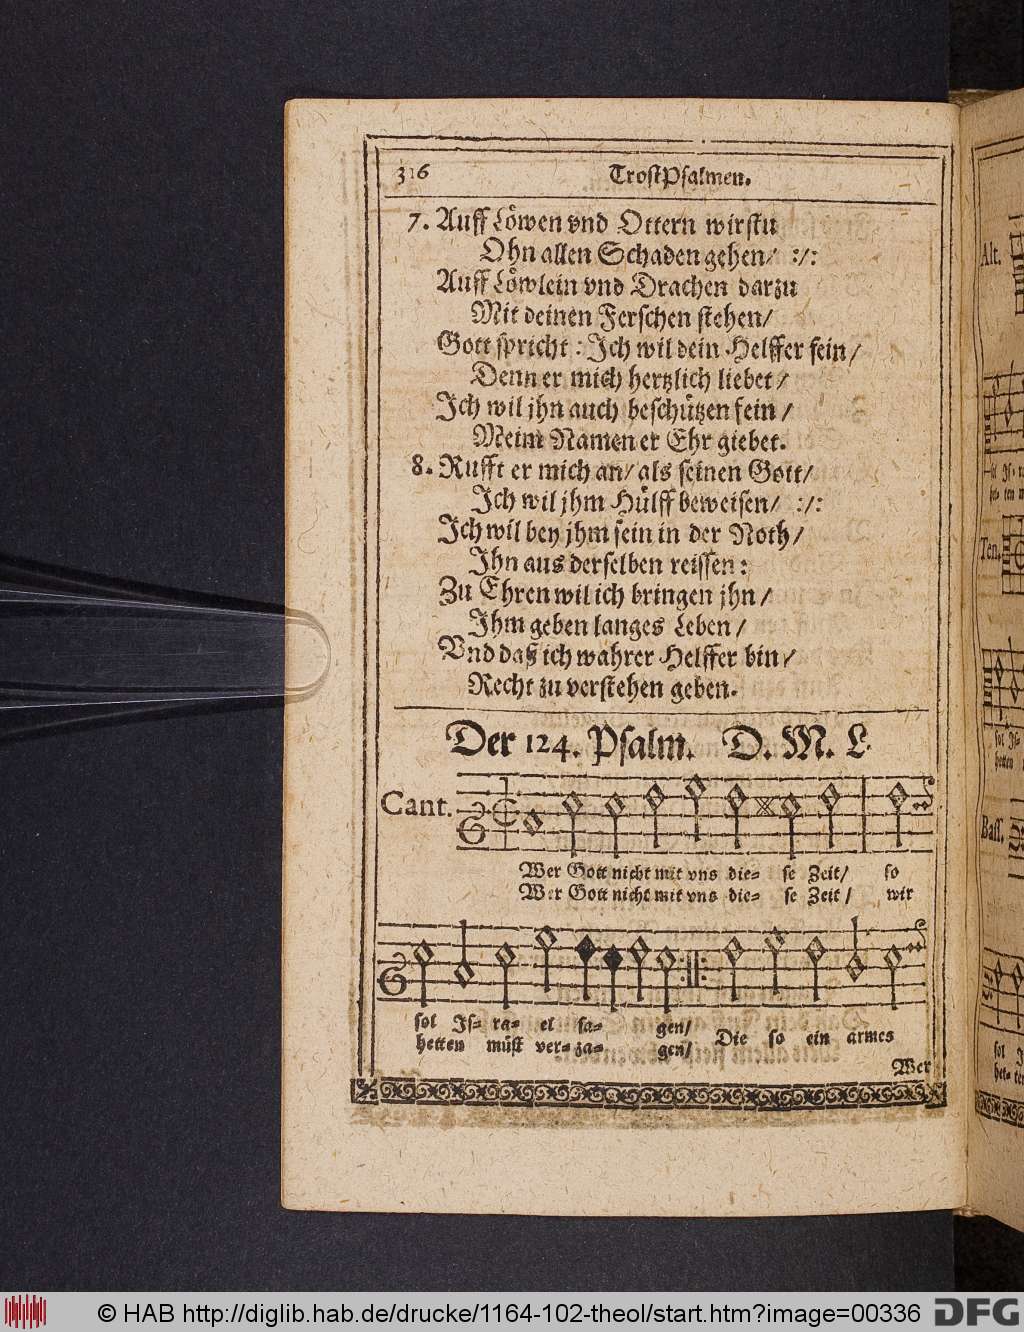 316 TrostPsalmen.
7. Auff Löwen vnd Ottern wirstu
Ohn allen Schaden gehen/ :/:
Auff Löwlein vnd Drachen darzu
Mit deinen Ferschen stehen/
Gott spricht: Ich wil dein Helffer sein/
Denn er mich hertzlich liebet/
Ich wil jhn auch beschützen fein/
Meim Namen er Ehr giebet.
8. Rufft er mich an/ als seinen Gott/
Ich wil jhm Hülff beweisen/ :/:
Ich wil bey jhm sein in der Noth/
Ihn aus derselben reissen:
Zu Ehren wil ich bringen jhn/
Ihm geben langes Leben/
Vnd daß ich wahrer Helffer bin/
Recht zu verstehen geben.
Der 124. Psalm. D. M. L.
Cant.
Wer Gott nicht mit vns die= se Zeit/ so
Wer Gott nicht mit vns die= se Zeit/ wir
sol Is= ra= el sa= gen/ Die so ein armes
hetten müst ver=za= gen/
Wer
Alt.
Ten.
Bass.
© HAB http://diglib.hab.de/drucke/1164-102-theol/start.htm?image=00336 DFG